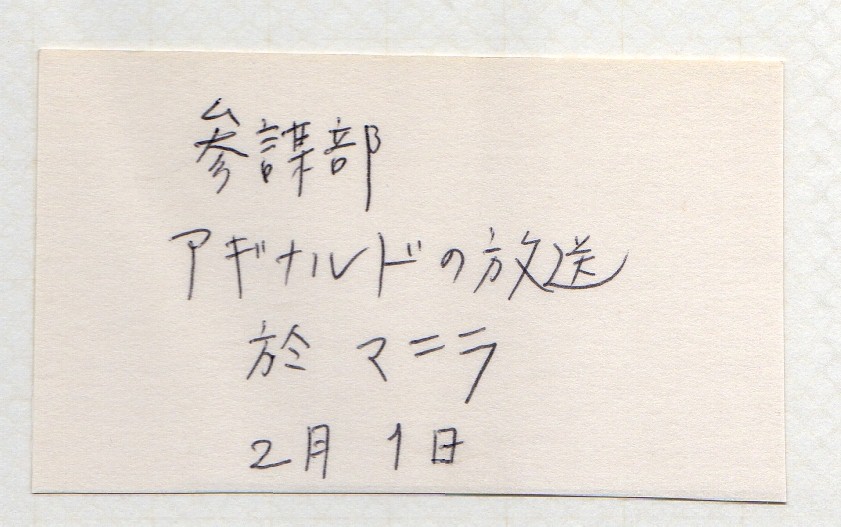 参謀部
アギナルドの放送
於 マニラ
2月 1日